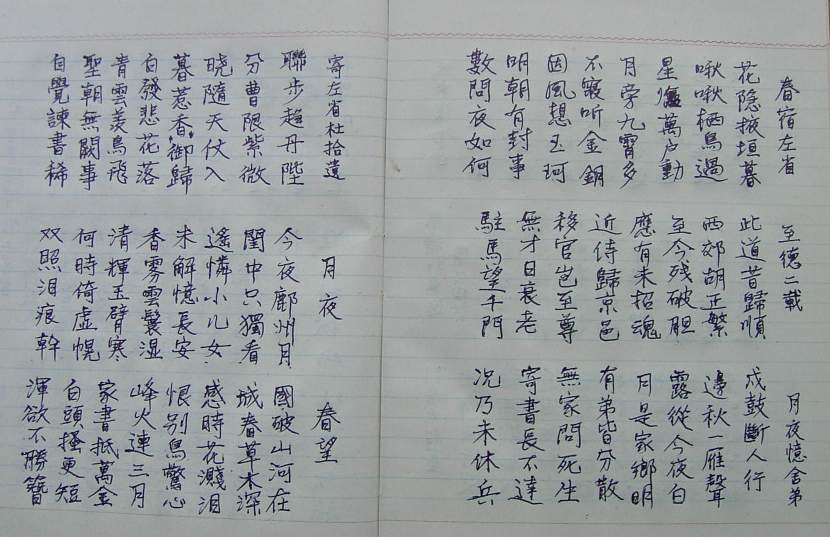 春宿左省
花隐掖垣暮
啾啾栖鳥過
星萬户動
月旁九霄多
不寢听金鑰
因風想玉珂
明朝有封事
數問夜如何
至德二載
此道昔歸順
西郊胡正繁
至今残破胆
應有未招魂
近侍歸京邑
移官岂至尊
無才日衰老
駐馬望千門
月夜憶舍弟
戍鼓斷人行
邊秋一雁聲
露從今夜白
月是家鄉明
有弟皆分散
無家問死生
寄書長不達
况乃未休兵
寄左省杜拾遺
聯步趨丹陛
分曹限紫微
晓隨天仗入
暮惹香御歸
白發悲花落
青雲羡鳥飛
聖朝無闕事
自覺諫書稀
月夜
今夜鄜州月
閨中只獨看
遙憐小儿女
未解憶長安
香雾雲鬟湿
清輝玉臂寒
何時倚虚幌
双照泪痕幹
春望
國破山河在
城春草木深
感時花濺泪
恨别鳥驚心
峰火連三月
家書抵萬金
白頭搔更短
渾欲不勝簪